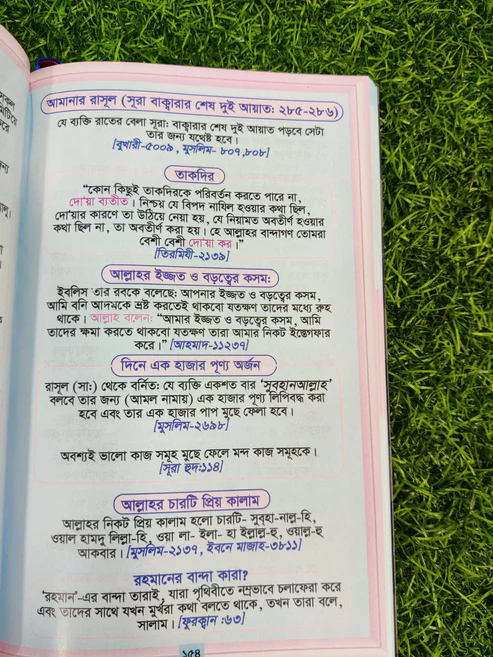 আমানার রাসূল (সূরা বাক্বারার শেষ দুই আয়াত: ২৮৫-২৮৬)
যে ব্যক্তি রাতের বেলা সূরা: বাক্বারার শেষ দুই আয়াত পড়বে সেটা
তার জন্য যথেষ্ট হবে।
[বুখারী-৫০০৯, মুসলিম- ৮০৭,৮০৮]
তাকদির
“কোন কিছুই তাকদিরকে পরিবর্তন করতে পারে না,
দো'য়া ব্যতীত। নিশ্চয় যে বিপদ নাযিল হওয়ার কথা ছিল,
দো'য়ার কারণে তা উঠিয়ে নেয়া হয়, যে নিয়ামত অবতীর্ণ হওয়ার
কথা ছিল না, তা অবতীর্ণ করা হয়। হে আল্লাহর বান্দাগণ তোমরা
বেশী বেশী দো'য়া কর।”
[তিরমিযী-২১৩৯]
আল্লাহর ইজ্জত ও বড়ত্বের কসম:
ইবলিস তার রবকে বলেছে: আপনার ইজ্জত ও বড়ত্বের কসম,
আমি বনি আদমকে ভ্রষ্ট করতেই থাকবো যতক্ষণ তাদের মধ্যে রুহ
থাকে। আল্লাহ বলেন: “আমার ইজ্জত ও বড়ত্বের কসম, আমি
তাদের ক্ষমা করতে থাকবো যতক্ষণ তারা আমার নিকট ইস্তেগফার
করে।” [আহমাদ-১১২৩৭]
দিনে এক হাজার পূণ্য অর্জন
রাসূল (সা:) থেকে বর্নিত: যে ব্যক্তি একশত বার ‘সুবহানআল্লাহ’
বলবে তার জন্য (আমল নামায়) এক হাজার পূণ্য লিপিবদ্ধ করা
হবে এবং তার এক হাজার পাপ মুছে ফেলা হবে।
[মুসলিম-২৬৯৮]
অবশ্যই ভালো কাজ সমূহ মুছে ফেলে মন্দ কাজ সমূহকে।
[সূরা হুদ:১১৪]
আল্লাহর চারটি প্রিয় কালাম
আল্লাহর নিকট প্রিয় কালাম হলো চারটি- সুব্হা-নাল্ল-হি,
ওয়াল হামদু লিল্লা-হি, ওয়া লা- ইলা- হা ইল্লাল্ল-হু, ওয়াল্ল-হু
আকবার। [মুসলিম-২১৩৭, ইবনে মাজাহ-৩৮১১]
রহমানের বান্দা কারা?
‘রহমান’-এর বান্দা তারাই, যারা পৃথিবীতে নম্রভাবে চলাফেরা করে
এবং তাদের সাথে যখন মুর্খরা কথা বলতে থাকে, তখন তারা বলে,
সালাম। [ফুরক্বান :৬৩]
১৫৪